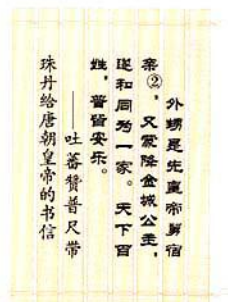 外甥是先皇帝舅宿
亲②,又蒙降金城公主,
遂和同为一家。天下百
姓,普皆安乐。
——吐蕃赞普尺带
珠丹给唐朝皇帝的书信